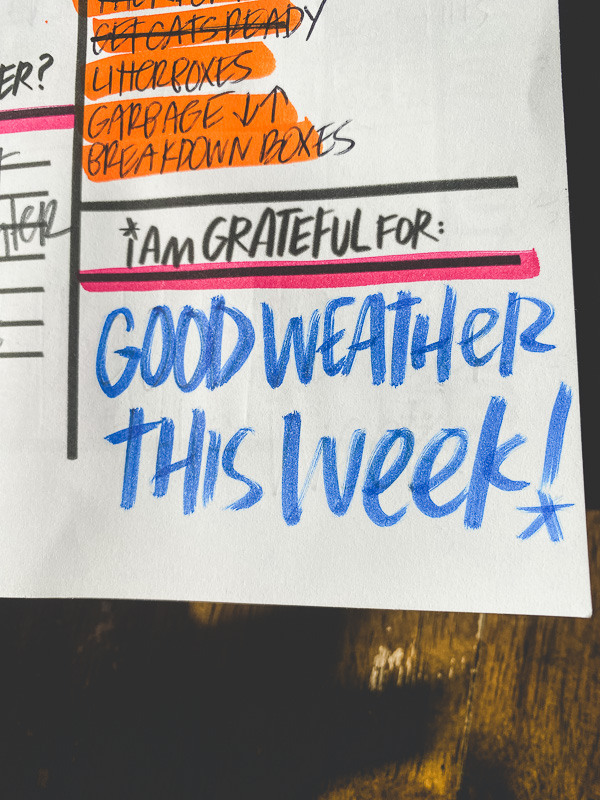 GET CATS READY
LITTERBOXES
GARBAGE ↓↑
BREAKDOWN BOXES
ER?
*i AM GRATEFUL FOR:
GOOD WEATHeR
THIS Week!